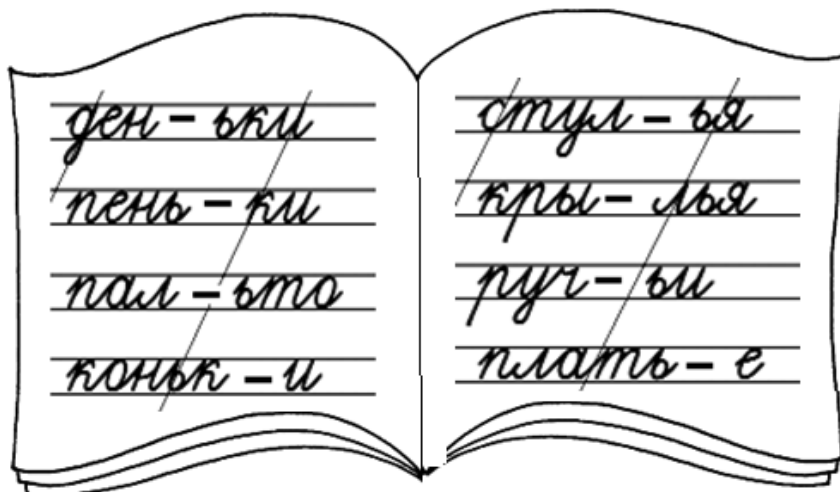 ден - ьки
пень - ки
пал - ьто
коньк - и
стул - ья
кры - лья
руч - ьи
плать - е